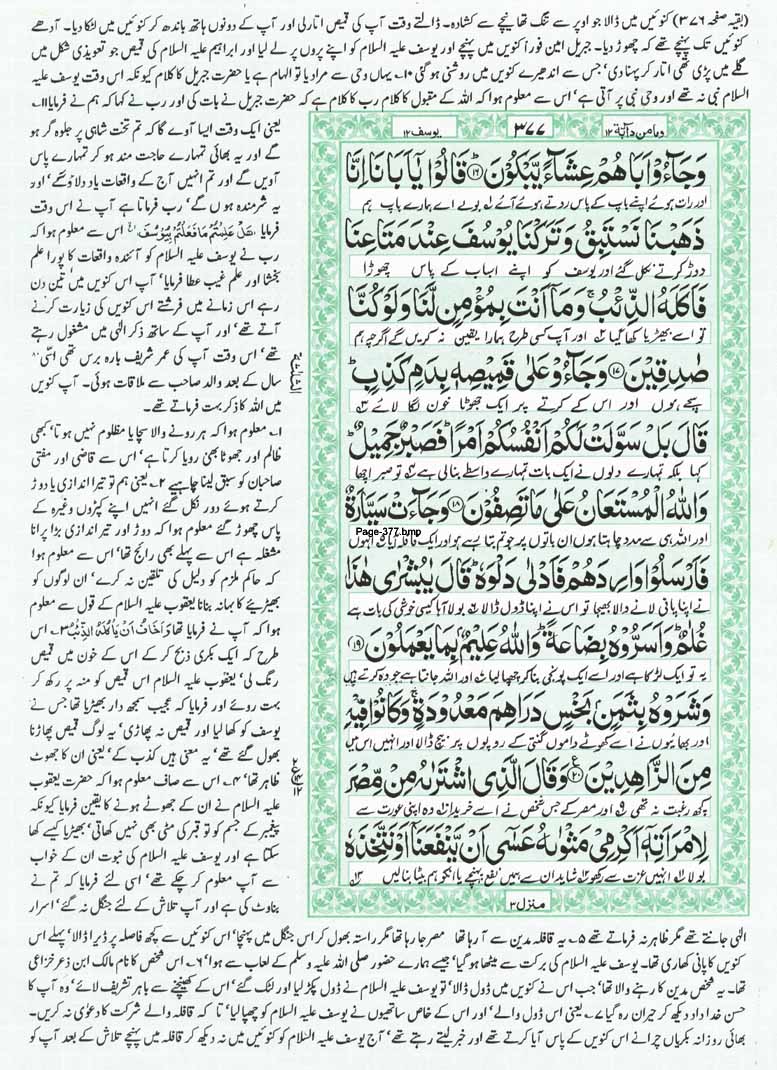 (بقیہ صفحہ ۳۷۶) کنوئیں میں ڈالا جو اوپر سے تنگ تھا نیچے سے کشادہ۔ ڈالتے وقت آپ کی قمیص اتار لی اور آپ کے دونوں ہاتھ باندھ کر کنوئیں میں لٹکا دیا۔ آدھے
کنوئیں تک پہنچے تھے کہ چھوڑ دیا۔ جبریل امین فوراً کنویں میں پہنچے اور یوسف علیہ السلام کو اپنے پروں پر لے لیا اور ابراہیم علیہ السلام کی قمیص جو تعویذی شکل میں
گلے میں پڑی تھی اتار کر پہنا دی' جس سے اندھیرے کنویں میں روشنی ہو گئی ۱۰۔ یہاں وحی سے مراد یا تو الہام ہے یا حضرت جبریل کا کلام کیونکہ اس وقت یوسف علیہ
السلام نبی نہ تھے اور وحی نبی پر آتی ہے' اس سے معلوم ہوا کہ اللہ کے مقبول کا کلام رب کا کلام ہے کہ حضرت جبریل نے بات کی اور رب نے کہا کہ ہم نے فرمایا ۱۱۔
ومامن دآبة ۱۲
۳۷۷
یوسف ۱۲
وَجَآءُوْٓ اَبَاهُمْ عِشَآءً يَّبْكُوْنَ ﴿۱۶﴾ قَالُوْا يٰٓاَبَانَآ اِنَّا
اور رات ہوئے اپنے باپ کے پاس روتے ہوئے آئے ف۱ بولے اے ہمارے باپ ہم
ذَهَبْنَا نَسْتَبِقُ وَتَرَكْنَا يُوْسُفَ عِنْدَ مَتَاعِنَا
دوڑ کرتے نکل گئے اور یوسف کو اپنے اسباب کے پاس چھوڑا
فَاَكَلَهُ الذِّئْبُ ۚ وَمَآ اَنْتَ بِمُؤْمِنٍ لَّنَا وَلَوْ كُنَّا
تو اسے بھیڑیا کھا گیا ف۲ اور آپ کسی طرح ہمارا یقین نہ کریں گے اگرچہ ہم
صٰدِقِيْنَ ﴿۱۷﴾ وَجَآءُوْ عَلٰى قَمِيْصِهٖ بِدَمٍ كَذِبٍ ۭ
سچے ہوں اور اس کے کرتے پر ایک جھوٹا خون لگا لائے ف۳
قَالَ بَلْ سَوَّلَتْ لَكُمْ اَنْفُسُكُمْ اَمْرًا ۭ فَصَبْرٌ جَمِيْلٌ ۭ
کہا بلکہ تمہارے دلوں نے ایک بات تمہارے واسطے بنالی ہے ف۴ تو صبر اچھا
وَاللّٰهُ الْمُسْتَعَانُ عَلٰى مَا تَصِفُوْنَ ﴿۱۸﴾ وَجَآءَتْ سَيَّارَةٌ
Page-377.bmp
اور اللہ ہی سے مدد چاہتا ہوں ان باتوں پر جو تم بتا رہے ہو اور ایک قافلہ آیا ف۵ انہوں
فَاَرْسَلُوْا وَارِدَهُمْ فَاَدْلٰى دَلْوَهٗ ۭ قَالَ يٰبُشْرٰى هٰذَا
نے اپنا پانی لانے والا بھیجا تو اس نے اپنا ڈول ڈالا ف۶ بولا آہا کیسی خوشی کی بات ہے
غُلٰمٌ ۭ وَاَسَرُّوْهُ بِضَاعَةً ۭ وَاللّٰهُ عَلِيْمٌۢ بِمَا يَعْمَلُوْنَ ﴿۱۹﴾
یہ تو ایک لڑکا ہے اور اسے ایک پونجی بنا کر چھپا لیا ف۷ اور اللہ جانتا ہے جو وہ کرتے ہیں
وَشَرَوْهُ بِثَمَنٍۢ بَخْسٍ دَرَاهِمَ مَعْدُوْدَةٍ ۚ وَكَانُوْا فِيْهِ
اور بھائیوں نے اسے کھوٹے داموں گنتی کے روپوں پر بیچ ڈالا اور انہیں اس میں
مِنَ الزَّاهِدِيْنَ ﴿۲۰﴾ وَقَالَ الَّذِى اشْتَرٰىهُ مِنْ مِّصْرَ
کچھ رغبت نہ تھی ف۹ اور مصر کے جس شخص نے اسے خریدا ف۱۰ وہ اپنی عورت سے
لِامْرَاَتِهٖٓ اَكْرِمِىْ مَثْوٰىهُ عَسٰٓى اَنْ يَّنْفَعَنَآ اَوْ نَتَّخِذَهٗ
بولا ف۱۱ انہیں عزت سے رکھو ف۱۲ شاید ان سے ہمیں نفع پہنچے یا انکو ہم بیٹا بنالیں ف۱۳
منزل ۳
یعنی ایک وقت ایسا آوے گا کہ تم تخت شاہی پر جلوہ گر ہو
گے اور یہ بھائی تمہارے حاجت مند ہو کر تمہارے پاس
آویں گے اور تم انہیں آج کے واقعات یاد دلاؤ گے' اور
یہ شرمندہ ہوں گے' رب فرماتا ہے آپ نے اس وقت
فرمایا هَلْ عَلِمْتُمْ مَّا فَعَلْتُمْ بِيُوْسُفَ اس سے معلوم ہوا کہ
رب نے یوسف علیہ السلام کو آئندہ واقعات کا پورا علم
بخشا اور علم غیب عطا فرمایا' آپ اس کنویں میں تین دن
رہے اس زمانے میں فرشتے اس کنویں کی زیارت کرنے
آتے تھے' اور آپ کے ساتھ ذکر الٰہی میں مشغول رہتے
تھے' اس وقت آپ کی عمر شریف بارہ برس تھی اسّی ۸۰
سال کے بعد والد صاحب سے ملاقات ہوئی۔ آپ کنویں
میں اللہ کا ذکر بہت فرماتے تھے۔
۱۔ معلوم ہوا کہ ہر رونے والا سچا یا مظلوم نہیں ہوتا' کبھی
ظالم اور جھوٹا بھی رویا کرتا ہے' اس سے قاضی اور مفتی
صاحبان کو سبق لینا چاہیے ۲۔ یعنی ہم تو تیر اندازی یا دوڑ
کرتے ہوئے دور نکل گئے انہیں اپنے کپڑوں وغیرہ کے
پاس چھوڑ گئے معلوم ہوا کہ دوڑ اور تیر اندازی بڑا پرانا
مشغلہ ہے اس سے پہلے بھی رائج تھا' اس سے معلوم ہوا
کہ حاکم ملزم کو دلیل کی تلقین نہ کرے' ان لوگوں کو
بھیڑیئے کا بہانہ بنانا یعقوب علیہ السلام کے قول سے معلوم
ہوا کہ آپ نے فرمایا تھا وَاَخَافُ اَنْ يَّاْكُلَهُ الذِّئْبُ ۳۔ اس
طرح کہ ایک بکری ذبح کر کے اس کے خون میں قمیص
رنگ لی' یعقوب علیہ السلام اس قمیص کو منہ پر رکھ کر
بہت روئے اور فرمایا کہ عجیب سمجھ دار بھیڑیا تھا جس نے
یوسف کو کھا لیا اور قمیص نہ پھاڑی' یہ لوگ قمیص پھاڑنا
بھول گئے تھے' یہ معنی ہیں کذب کے' یعنی ان کا جھوٹ
ظاہر تھا' ۴۔ اس سے صاف معلوم ہوا کہ حضرت یعقوب
علیہ السلام نے ان کے جھوٹے ہونے کا یقین فرمایا کیونکہ
پیغمبر کے جسم کو تو قبر کی مٹی بھی نہیں کھاتی' بھیڑیا کیسے کھا
سکتا ہے اور یوسف علیہ السلام کی نبوت ان کے خواب
سے آپ معلوم کر چکے تھے' اسی لئے فرمایا کہ تم نے
بناوٹ کی ہے اور آپ تلاش کے لئے جنگل نہ گئے' اسرار
الٰہی جانتے تھے مگر ظاہر نہ فرماتے تھے ۵۔ یہ قافلہ مدین سے آ رہا تھا مصر جا رہا تھا مگر راستہ بھول کر اس جنگل میں پہنچا' اس کنوئیں سے کچھ فاصلہ پر ڈیرا ڈالا' پہلے اس
کنویں کا پانی کھاری تھا۔ یوسف علیہ السلام کی برکت سے میٹھا ہو گیا' جیسے ہمارے حضور صلی اللہ علیہ وسلم کے لعاب سے ہوا' ۶۔ اس شخص کا نام مالک ابن ذعر خزاعی
تھا۔ یہ شخص مدین کا رہنے والا تھا' جب اس نے کنویں میں ڈول ڈالا' تو یوسف علیہ السلام نے ڈول پکڑ لیا اور لٹک گئے' اس کے کھینچنے سے باہر تشریف لائے' وہ آپ کا
حسن خداداد دیکھ کر حیران رہ گیا ۷۔ یعنی اس ڈول والے' اور اس کے خاص ساتھیوں نے یوسف علیہ السلام کو چھپا لیا' تا کہ قافلہ والے شرکت کا دعویٰ نہ کریں۔
بھائی روزانہ بکریاں چرانے اس کنویں کے پاس آیا کرتے تھے اور خبر لیتے رہتے تھے' آج یوسف علیہ السلام کو کنوئیں میں نہ دیکھ کر قافلہ میں پہنچے تلاش کے بعد آپ کو